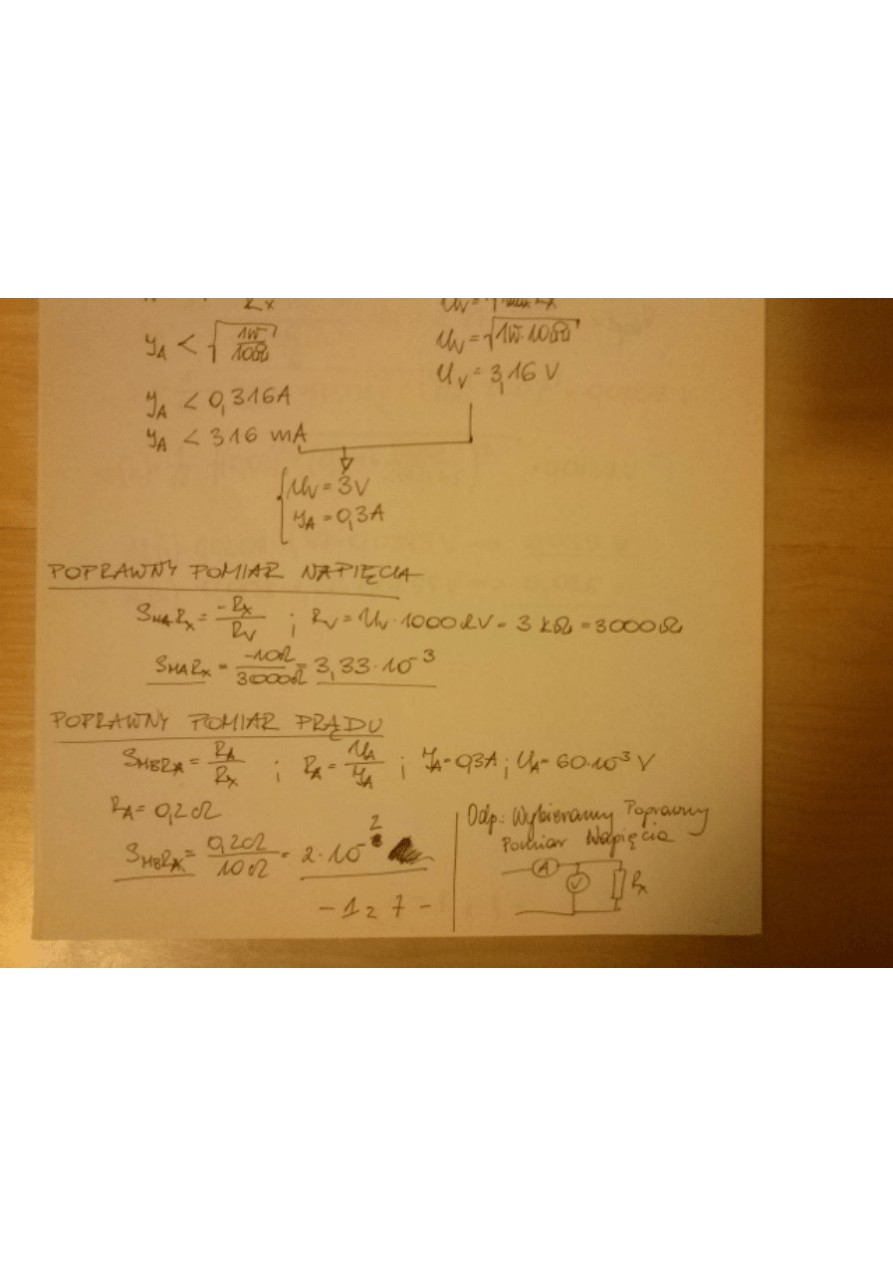 Rx
I_A < √(1W/10Ω)
U_V = √(1W·10Ω)
U_V = 3,16 V
I_A < 0,316A
I_A < 316 mA
U_V = 3V
I_A = 0,3A
POPRAWNY POMIAR NAPIĘCIA
S_MARx = -Rx/R_V ; R_V = U_V·1000ΩV = 3 kΩ = 3000Ω
S_MARx = -10Ω/3000Ω = 3,33·10⁻³
POPRAWNY POMIAR PRĄDU
S_MBRx = R_A/Rx ; R_A = U_A/I_A ; I_A = 0,3A ; U_A = 60·10⁻³ V
R_A = 0,2Ω
S_MBRx = 0,2Ω/10Ω = 2·10⁻²
Odp.: Wybieramy Poprawny
Pomiar Napięcia
A
V
Rx
- 1 z 7 -